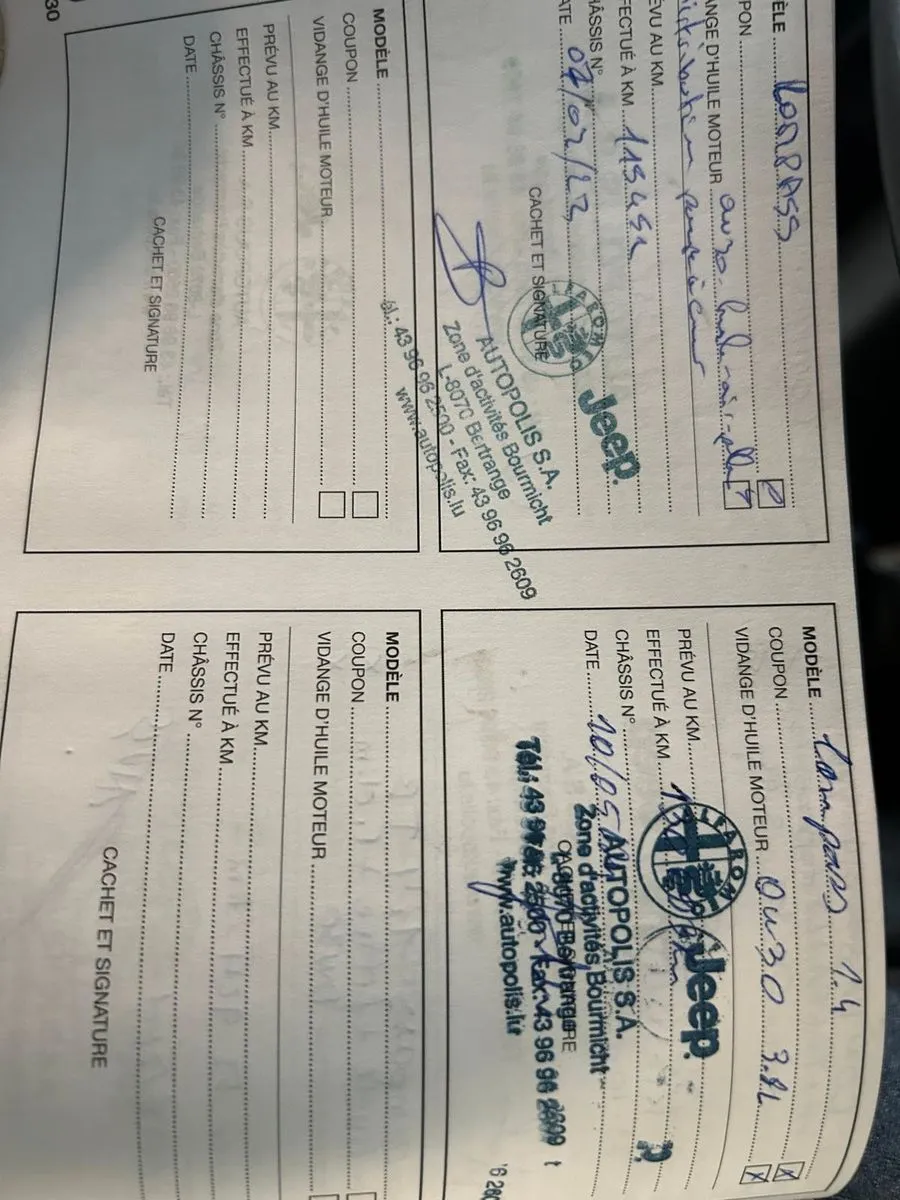 ÈLE COMPASS
UPON
ANGE D'HUILE MOTEUR
ÉVU AU KM
FFECTUÉ À KM
HÂSSIS N°
ATE 07/02/23
CACHET ET SIGNATURE
Jeep.
AUTOPOLIS S.A.
Zone d'activités Bourmicht
L-8070 Bertrange
él.: 43 96 96 2500 - Fax: 43 96 96 2609
www.autopolis.lu
MODÈLE
COUPON
VIDANGE D'HUILE MOTEUR
PRÉVU AU KM
EFFECTUÉ À KM
CHÂSSIS N°
DATE
CACHET ET SIGNATURE
30
MODÈLE Compass 1.4
COUPON
VIDANGE D'HUILE MOTEUR 0w30 3.8L
PRÉVU AU KM
EFFECTUÉ À KM
CHÂSSIS N°
DATE 10/05
Jeep.
AUTOPOLIS S.A.
Zone d'activités Bourmicht
L-8070 Bertrange
Tél.: 43 96 96 2500 - Fax: 43 96 96 2609
www.autopolis.lu
MODÈLE
COUPON
VIDANGE D'HUILE MOTEUR
PRÉVU AU KM
EFFECTUÉ À KM
CHÂSSIS N°
DATE
CACHET ET SIGNATURE